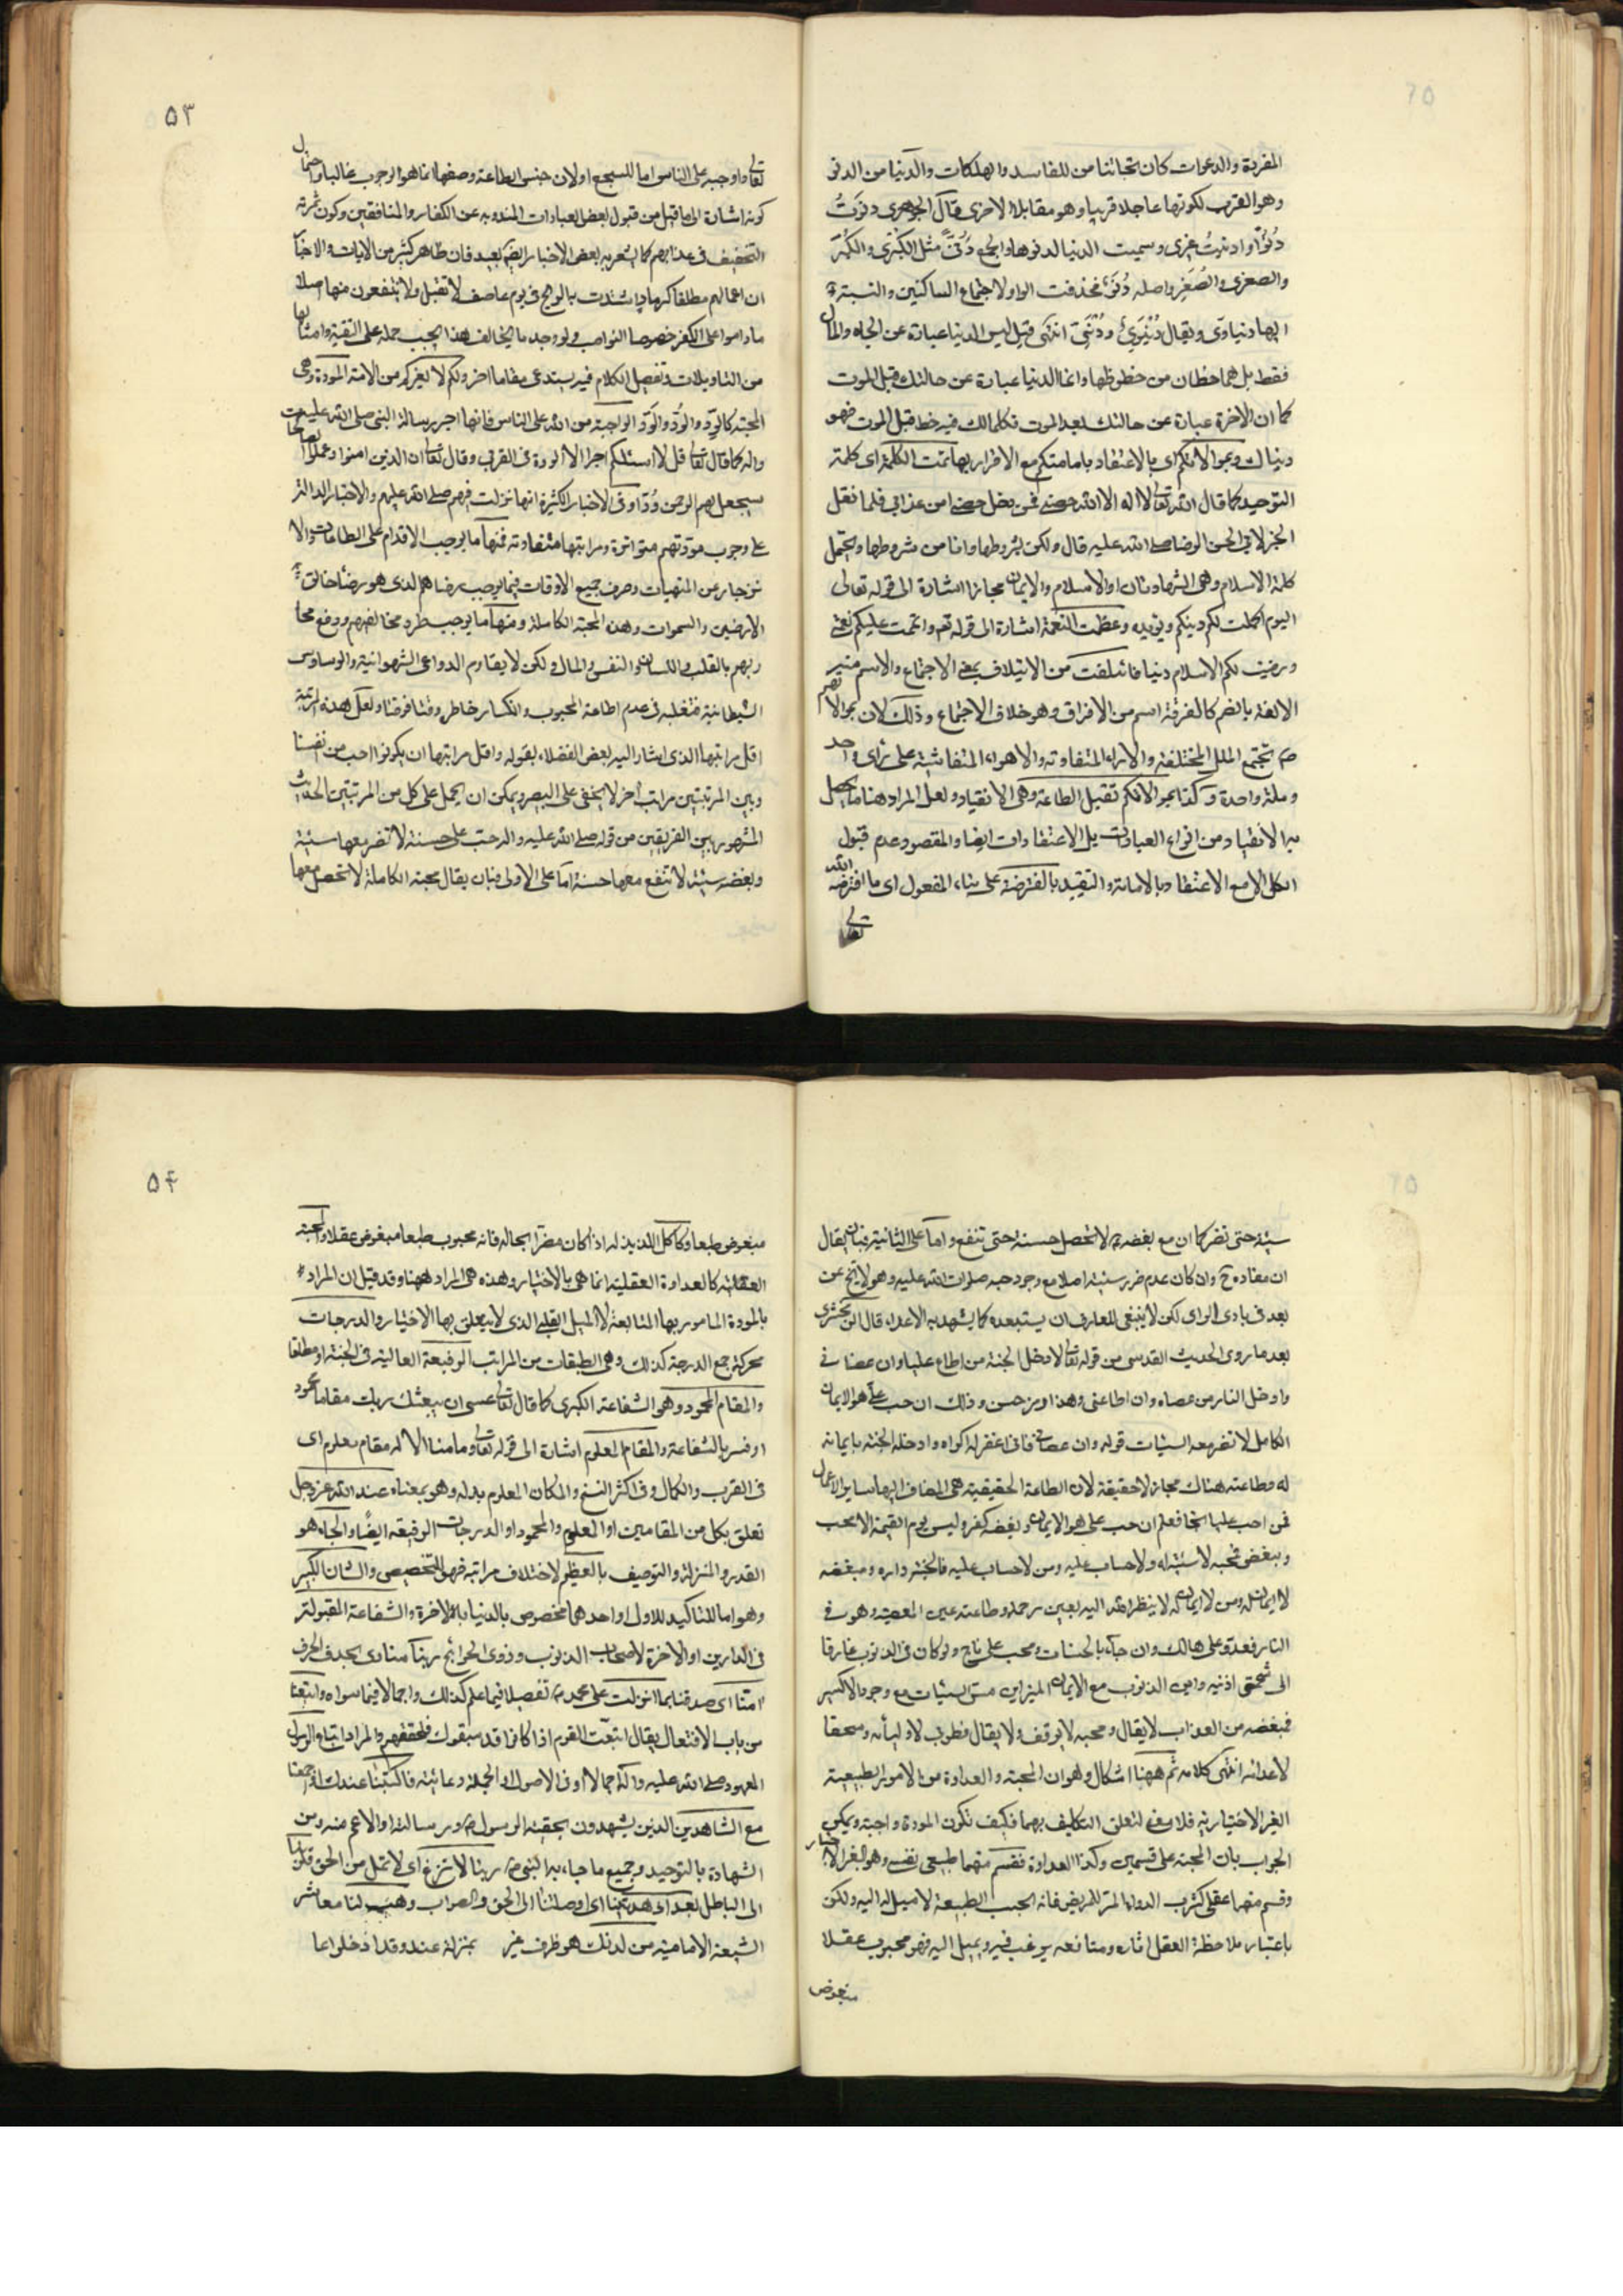 المفردة والدعوات كان نجاتنا من المفاسد والهلكات والدنيا من الدنو
وهو القرب لكونها عاجلا قريبا وهو مقابلة الاخرى قال الجوهري دنوت
دنوا وادنيت غيري وسميت الدنيا لدنوها والجمع دنى مثل الكبرى والكبر
والصغرى والصغر واصله دنو فحذفت الواو لاجتماع الساكنين والنسبة
اليها دنياوي ويقال دنيوي ودنيي انتهى قيل ليس الدنيا عبارة عن الجاه والمال
فقط بل هما حظان من حظوظها وانما الدنيا عبارة عن حالتك قبل الموت
كما ان الاخرة عبارة عن حالتك بعد الموت فكلما لك فيه حظ قبل الموت فهو
دنياك وبموالاتكم اي بالاعتقاد بامامتكم مع الاقرار بها تمت الكلمة اى كلمة
التوحيد كما قال الله تعالى لا اله الا الله حصني فمن دخل حصني امن عذابي فلما نقل
الخبر لابي الحسن الرضا صلى الله عليه قال ولكن بشروطها وانا من شروطها ويحتمل
كلمة الاسلام وهي الشهادتان او الاسلام والايمان مجازا اشارة الى قوله تعالى
اليوم اكملت لكم دينكم ويؤيده وعظمت النعمة اشارة الى قوله تعالى واتممت عليكم نعمتي
ورضيت لكم الاسلام دينا وائتلفت من الايتلاف بمعنى الاجتماع والاسم منه
الالفة بالضم كالفرقة اسم من الافتراق وهو خلاف الاجتماع وذلك لان بموالاتهم
تجتمع الملل المختلفة والاراء المتفاوتة والاهواء على رأى واحد
وملة واحدة وبموالاتكم تقبل الطاعة وهي الانقياد ولعل المراد هنا ما يحصل
به الانقياد من انواع العبادات بل الاعتقادات ايضا والمقصود عدم قبول
الكل الا مع الاعتقاد بالامامة والتقييد بالمفترضة على بناء المفعول اى ما افترضه الله
تعالى
٥٣
تعالى واوجبه على الناس اما للسجع او لان جنس الطاعة وصفها انما هو الوجوب غالبا واحتمال
كونه اشارة الى ما قيل من قبول بعض العبادات المندوبة عن الكفار والمنافقين وكون ثمرته
التخفيف في عذابهم كما يشعر به بعض الاخبار ايضا بعيد فان ظاهر كثير من الايات والاخبار
ان اعمالهم مطلقا كرماد اشتدت به الريح في يوم عاصف لا تقبل ولا ينتفعون منها اصلا
ماداموا على الكفر خصوصا النواصب ولو وجد ما يخالف هذا يجب حمله على التقية وامثالها
من التاويلات وتفصيل الكلام فيه يستدعى مقاما اخر ولكم لا لغيركم من الامة المودة وهى
المحبة كالود والود والود الواجبة من الله على الناس فانها اجر رسالة النبي صلى الله عليه
واله كما قال تعالى قل لا اسئلكم اجرا الا المودة في القربى وقال تعالى ان الذين امنوا وعملوا الصالحات
سيجعل لهم الرحمن ودا وفي الاخبار الكثيرة انها نزلت فيهم صلى الله عليهم والاخبار الدالة
على وجوب مودتهم متواترة ومراتبها متفاوتة فمنها ما يوجب الاقدام على الطاعات والا
نزجار عن المنهيات وصرف جميع الاوقات فيما يوجب رضاهم الذى هو رضا خالق
الارضين والسموات وهذه المحبة الكاملة ومنها ما يوجب طرد مخالفهم ودفع محا
ربهم بالقلب واللسان والنفس والمال ولكن لا يقاوم الدواعى الشهوانية والوساوس
الشيطانية فتغلبه في عدم اطاعة المحبوب وانكسار خاطره وقتا فوقتا ولعل هذه المرتبة
اقل مراتبها الذى اشار اليه بعض الفضلاء بقوله واقل مراتبها ان يكونوا احب من نفسنا
وبين المرتبتين مراتب اخر لا يخفى على البصير ويمكن ان يحمل على كل من المرتبتين الحديث
المشهور بين الفريقين من قوله صلى الله عليه واله حب على حسنة لا تضر معها سيئة
وبغضه سيئة لا تنفع معها حسنة اما على الاولى فبان يقال محبته الكاملة لا تحصل معها
سيئة حتى تضر كما ان مع بغضه لا تحصل حسنة حتى تنفع واما على الثانية فبان يقال
ان مفاده ح وان كان عدم ضرر سيئة اصلا مع وجود حبه صلوات الله عليه وهو لا يخ عن
بعد في بادى الراى لكن لا ينبغي للعارف ان يستبعده كما يشهد به الاعداء قال الزمخشرى
بعد ما روى الحديث القدسى من قوله تعالى لادخل الجنة من اطاع عليا وان عصانى
وادخل النار من عصاه وان اطاعنى وهذا رمز حسن وذلك ان حب على هو الايمان
الكامل لا تضر معه السيئات قوله وان عصانى فانى اغفر له اكراما وادخله الجنة بايمانه
له وطاعته هناك مجاز لا حقيقة لان الطاعة الحقيقية هى المضاف اليها ساير الاعمال
فمن احب عليا نجا فعلم ان حب على هو الايمان وبغضه كفر وليس يوم القيمة الا محب
ومبغض فمحبه لا سيئة له ولا حساب عليه ومن لا حساب عليه فالجنة داره ومبغضه
لا ايمان له ومن لا ايمان له لا ينظر الله اليه بعين رحمة وطاعته عين المعصية وهو فى
النار فعدو على هالك وان جاء بالحسنات ومحب على ناج ولو كان فى الذنوب غارقا
الى شحمتى اذنيه واين الذنوب مع الايمان المنير اين مس السيئات مع وجود الاكسير
فمبغضه من العذاب لا يقال ومحبه لا يوقف ولا يقال فطوبى لاوليائه وسحقا
لاعدائه انتهى كلامه ثم ههنا اشكال وهو ان المحبة والعداوة من الامور الطبيعية
الغير الاختيارية فلا معنى لتعلق التكاليف بهما فكيف تكون المودة واجبة ويمكن
الجواب بان المحبة على قسمين وكذا العداوة فقسم منهما طبيعى نفسى وهو الغير الاختيار
وقسم منهما عقلى كشرب الدواء المر للمريض فانه بحسب الطبيعة لا ميل له اليه ولكن
باعتبار ملاحظة العقل اثاره ومنافعه يرغب فيه ويميل اليه فهو محبوب عقلا
مبغوض
٥٤
مبغوض طبعا وكاكل اللذيذ له اذا كان مضرا بحاله فانه محبوب طبعا مبغوض عقلا والمحبة
العقلية كالعداوة العقلية انما هى بالاختيار وهذه هى المراد ههنا وقد قيل ان المراد
بالمودة المامور بها المتابعة لا الميل القلبى الذى لا يتعلق بها الاختيار والدرجات
محركة جمع الدرجة كذلك وهى الطبقات من المراتب الرفيعة العالية فى الجنة او مطلقا
والمقام المحمود وهو الشفاعة الكبرى كما قال تعالى عسى ان يبعثك ربك مقاما محمود
او فسر بالشفاعة والمقام المعلوم اشارة الى قوله تعالى وما منا الا له مقام معلوم اى
فى القرب والكمال وفى اكثر النسخ والمكان المعلوم بدله وهو بمعناه عند الله عز وجل
تعلق بكل من المقامين او المعلوم والمحمود او الدرجات الرفيعة ايضا والجاه هو
القدر والمنزلة والتوصيف بالعظيم لاختلاف مراتبه فهو للتخصيص والشان الكبير
وهو اما للتاكيد للاول او احدهما مخصوص بالدنيا بالاخرة والشفاعة المقبولة
فى الدارين او الاخرة لاصحاب الذنوب وذوى الحوائج ربنا منادى بحذف الحرف
امنا اى صدقنا بما انزلت على محمد تفصيلا فيما علم كذلك واجمالا فيما سواه واتبعنا
من باب الافتعال يقال اتبعت القوم اذا كانوا قد سبقوك فلحقتهم والمراد اتباع الرسول
المعهود صلى الله عليه واله اجمالا او فى الاصول الجملة وعائيته فاكتبنا عندك اى اجمعنا
مع الشاهدين الذين يشهدون بحقية الرسول ورسالته او الاعم منه ومن
الشهادة بالتوحيد وجميع ما جاء به النبى ربنا لا تزغ اى لا تمل من الحق قلوبنا
الى الباطل بعد اذ هديتنا اى اوصلتنا الى الحق والصواب وهب لنا معاشر
الشيعة الامامية من لدنك هو ظرف غير بمنزلة عند وقد ادخلوا عليها